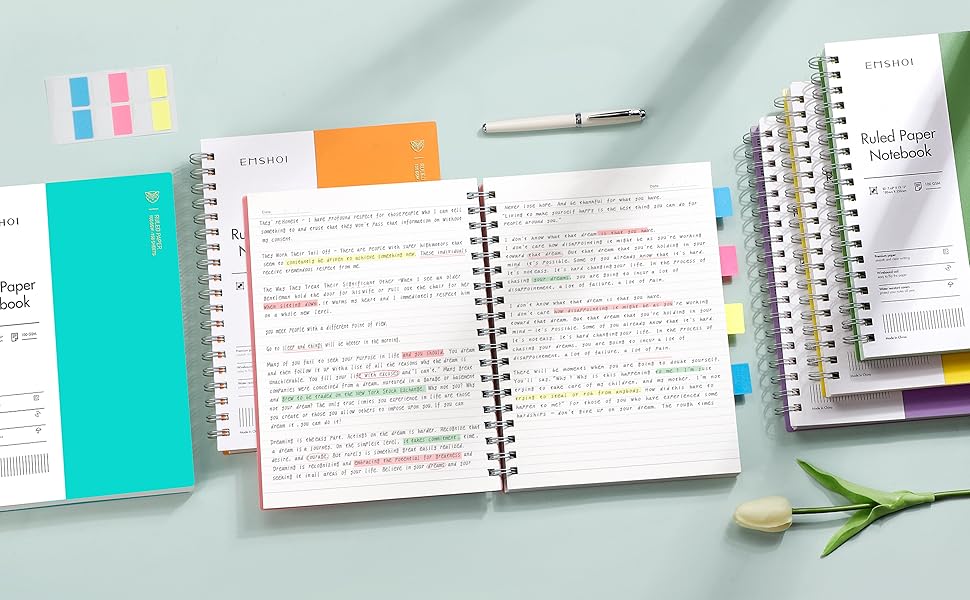 EMSHOI
RULED PAPER
Paper
book
100 GSM
EMSHOI
Date:
They respond - I have profound respect for those people who I can tell
something to and ensure that they won't pass that information on without
my consent.
They Work Their Tail Off - There are people with super highmotors that
seem to constantly be driven to achieve something new. These individuals
receive tremendous respect from me.
The Way They Treat Their Significant Other - When I see an older
gentleman hold the door for his wife or pull out the chair for her
when sitting down, it warms my heart and I immediately respect him
on a whole new level.
you meet people with a different point of view.
Go to sleep and things will be better in the morning.
Many of you fail to seek your purpose in life and you should. You dream
and then follow it up with all the reasons why the dream is
unachievable. You fill your life with excuses and I can't. Many great
companies were conceived from a dream, nurtured in a garage or basement
and grew to be traded on the New York Stock Exchange. Why not you? Why
not your dream? The only true limits you experience in life are those
you create or those you allow others to impose upon you. If you can
dream it, you can do it!
Dreaming is the easy part. Acting on the dream is harder. Recognize that
a dream is a journey. On the simplest level, it takes commitment, time,
desire, and courage. But rarely is something great easily realized.
Dreaming is recognizing and embracing the potential for greatness and
seeking it in all areas of your life. Believe in your dreams and your
Date:
Never lose hope. And be thankful for what you have.
"Living to make yourself happy is the best thing you can do for
people around you."
I don't know what that dream is that you have,
I don't care how disappointing it might be as you're working
toward that dream. But that dream that you're holding in your
mind - it's possible. Some of you already know that it's hard
it's not easy. It's hard changing your life. In the process of
chasing your dreams, you are going to incur a lot of
disappointment, a lot of failure, a lot of pain.
I don't know what that dream is that you have.
I don't care how disappointing it might be as you're working
toward that dream. But that dream that you're holding in your
mind - it's possible. Some of you already know that it's hard
it's not easy. It's hard changing your life. In the process of
chasing your dream, you are going to incur a lot of
disappointment, a lot of failure, a lot of pain.
There will be moments when you are going to doubt yourself.
You'll say, "Why? Why is this happening to me? I'm just
trying to take care of my children, and my mother. I'm not
trying to steal or rob from anybody. How did this have to
happen to me?" For those of you who have experienced some
hardships - don't give up on your dream. The rough times
EMSHOI
Ruled Paper
Notebook
100 GSM
Premium paper
Made in China